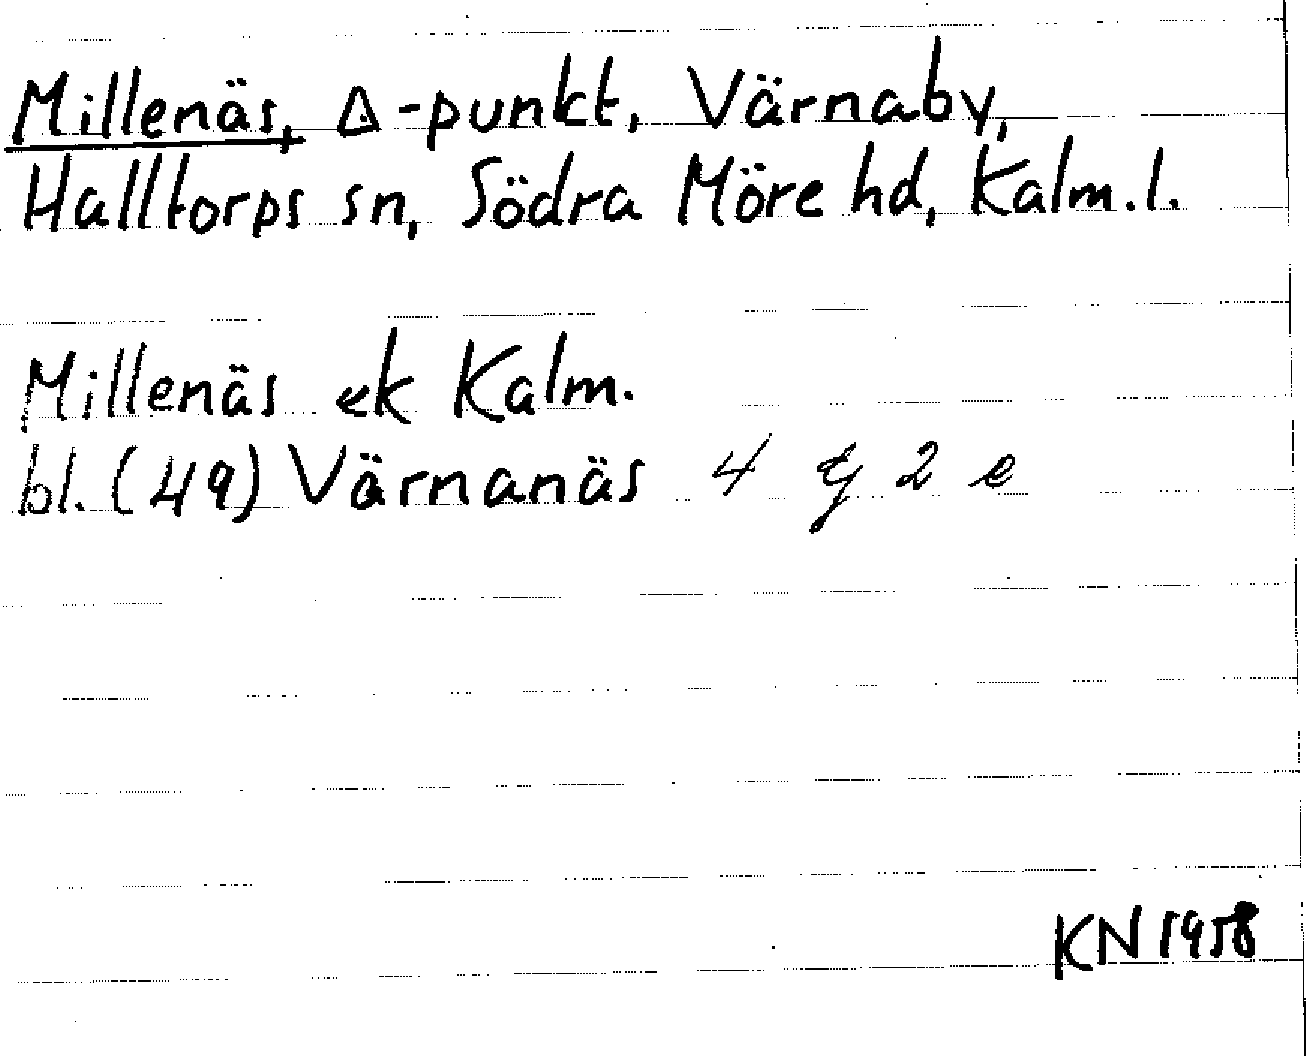 Millenäs, △-punkt, Värnaby,
Halltorps sn, Södra Möre hd, Kalm.l.
Millenäs ek Kalm.
bl. (49) Värnanäs 4 G 2 e
KN 1958